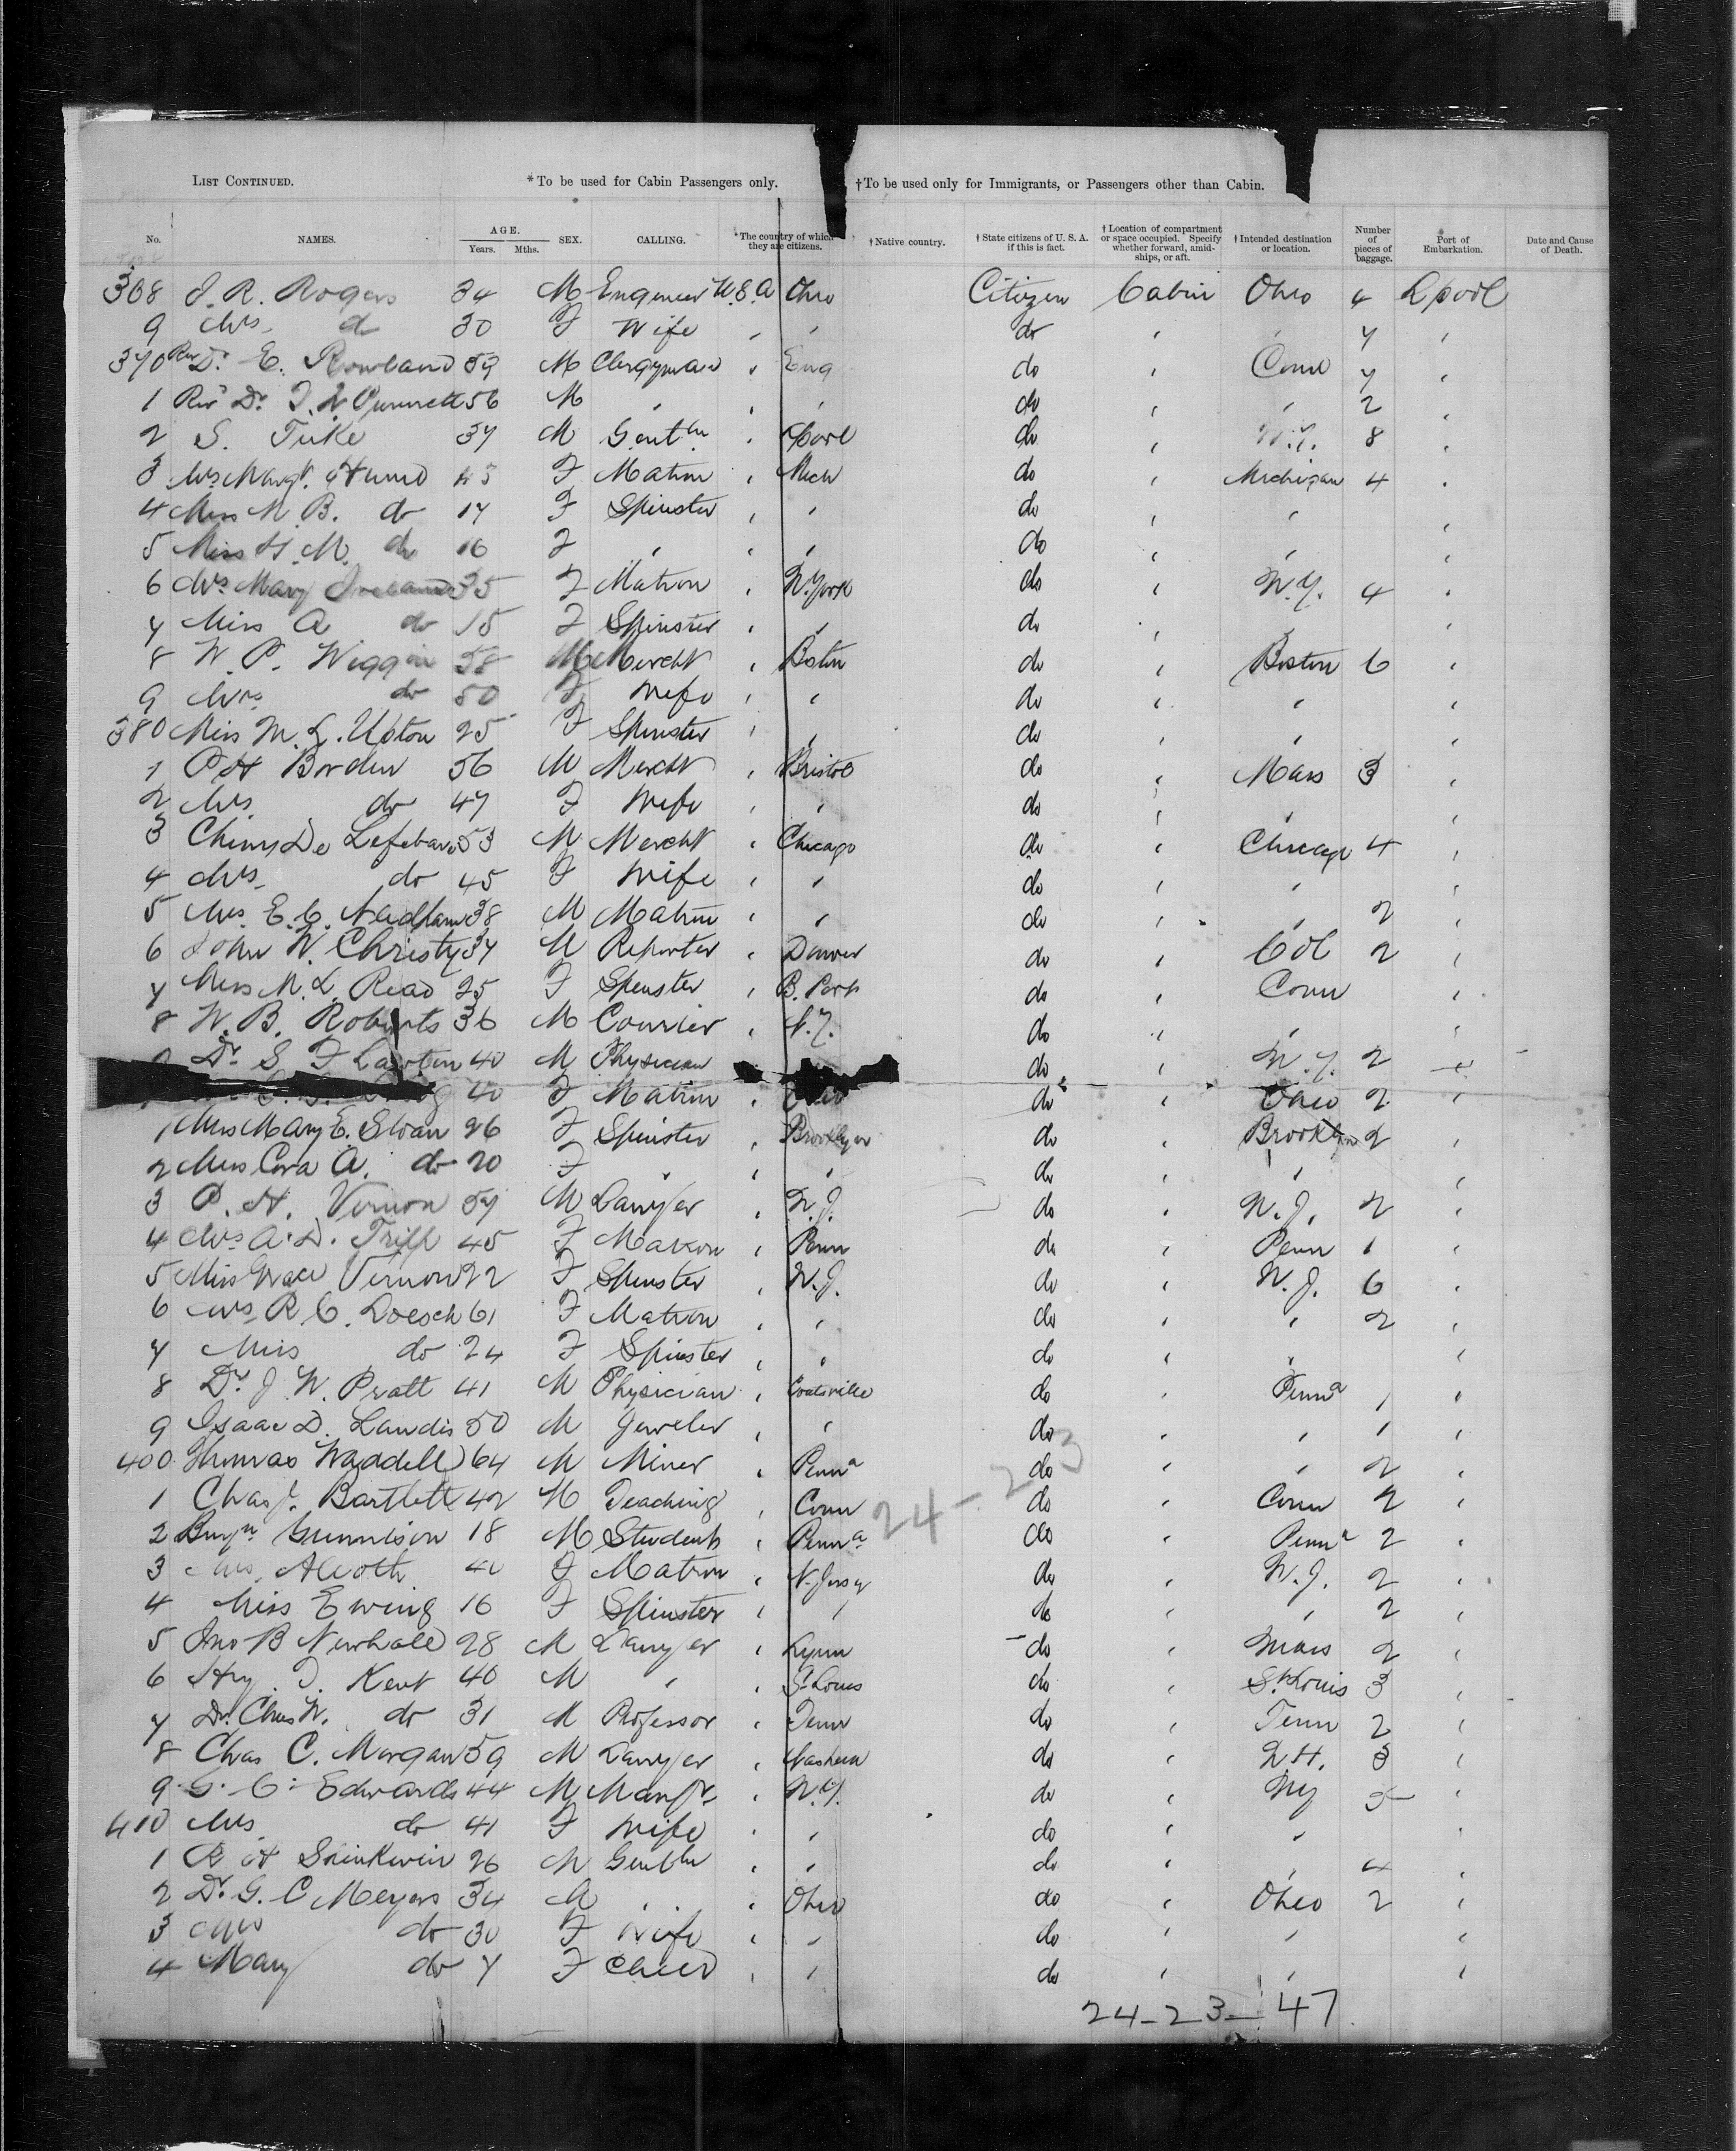 LIST CONTINUED. *To be used for Cabin Passengers only. †To be used only for Immigrants, or Passengers other than Cabin.
No. NAMES. AGE. Years. Mths. SEX. CALLING. *The country of which they are citizens. †Native country. †State citizens of U. S. A. if this is fact. †Location of compartment or space occupied. Specify whether forward, amidships, or aft. †Intended destination or location. Number of pieces of baggage. Port of Embarkation. Date and Cause of Death.
368 J. R. Rogers 34 M Engineer U.S.A Ohio Citizen Cabin Ohio 4 Lpool
9 Mrs do 30 F Wife " " do " " 4 "
370 Rev Dr. E. Rowland 59 M Clergyman " Eng do " Conn 4 "
1 Rev Dr. 56 M " " " do " " 2 "
2 S. Tuke 37 M Gentln " Lpool do " N.Y. 8 "
3 Mrs Margt. 45 F Matron " Mich do " Michigan 4 "
4 Miss M. B. do 17 F Spinster " " do " " "
5 Miss H. M. do 16 F " " " do " " "
6 Mrs Mary Ireland 35 F Matron " N. York do " N.Y. 4 "
7 Miss A do 15 F Spinster " " do " " "
8 W. P. Wiggin 58 M Mercht " Boston do " Boston 6 "
9 Mrs do 50 F Wife " " do " " "
380 Miss M. L. Upton 25 F Spinster " " do " " "
1 P H Borden 56 M Mercht " Bristol do " Mass 3 "
2 Mrs do 47 F Wife " " do " " "
3 De 53 M Mercht " Chicago do " Chicago 4 "
4 Mrs do 45 F Wife " " do " " "
5 Mrs. E. C. Needham 38 M Matron " " do " " 2 "
6 John W. Christy 34 M Reporter " Denver do " Col 2 "
7 Miss M. L. Read 25 F Spinster " B. Port do " Conn "
8 W. B. Roberts 36 M Courier " N.Y. do " " "
Dr. S F Lawton 40 M Physician do N.Y. 2 "
40 F Matron " Ohio do " Ohio 2 "
1 Miss Mary E. Sloan 26 F Spinster " Brooklyn do " Brooklyn 2 "
2 Miss Cora A. do 20 F " " " do " " "
3 P. H. Vernon 59 M Lawyer " N.J. do " N.J. 2 "
4 Mrs A. D. Tripp 45 F Matron " Penn do " Penn 1 "
5 Miss Grace Vernon 22 F Spinster " N.J. do " N.J. 6 "
6 Mrs R. C. Loesch 61 F Matron " " do " " 2 "
7 Miss do 24 F Spinster " " do " " "
8 Dr. J. W. Pratt 41 M Physician " Coatsville do " Penna 1 "
9 Isaac D. Landis 50 M Jeweler " " do " " 1 "
400 Thomas Waddell 64 M Miner " Penna do " " 2 "
1 Chas J. Bartlett 42 M Teaching " Conn 24-23 do " Conn 2 "
2 Benjn Gunnison 18 M Student " Penna do " Penna 2 "
3 Mrs. 40 F Matron " N. Jersy do " N.J. 2 "
4 Miss Ewing 16 F Spinster " " do " " 2 "
5 Jno B Newhall 28 M Lawyer " Lynn do " Mass 2 "
6 Hy. T. Kent 40 M " " St Louis do " St. Louis 3 "
7 Dr. Chas W. do 31 M Professor " Tenn do " Tenn 2 "
8 Chas C. Morgan 59 M Lawyer " Nashua do " N.H. 3 "
9 G. C. Edwards 44 M Manfr " N.Y. do " NY 5 "
410 Mrs do 41 F Wife " " do " " "
1 R H 26 M Gentln " " do " " 4 "
2 Dr. G. C Meyers 34 M " " Ohio do " Ohio 2 "
3 Mrs do 30 F Wife " " do " " "
4 Mary do 7 F Child " " do " " "
24-23-47